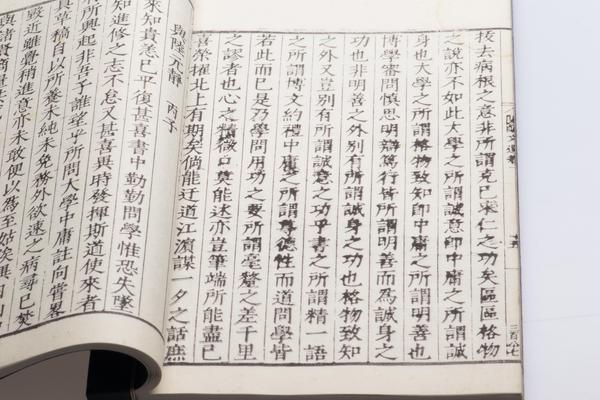 拔去病根之意非所謂克己求仁之功矣區區格物
之說亦不如此大學之所謂誠意卽中庸之所謂誠
身也大學之所謂格物致知卽中庸之所謂明善也
博學審問愼思明辯篤行皆所謂明善而爲誠身之
功也非明善之外別有所謂誠身之功也格物致知
之外又豈別有所謂誠意之功乎書之所謂精一語
之所謂博文約禮中庸之所謂尊德性而道問學皆
若此而已是乃學問用功之要所謂毫釐之差千里
之謬者也心之精微口莫能述亦豈筆端所能盡已
喜榮擢北上有期矣倘能迂道江濱謀一夕之話庶
與陸元靜 丙子
來知貴恙已平復甚喜書中勤勤問學惟恐失墜
知進修之志不怠又甚喜異時發揮斯道使來者
所興起非吾子誰望乎所問大學中庸註向嘗畧
具草稿自以所養未純未免務外欲速之病尋已焚
毀近雖覺稍進意亦未敢便以爲至姑俟異日山